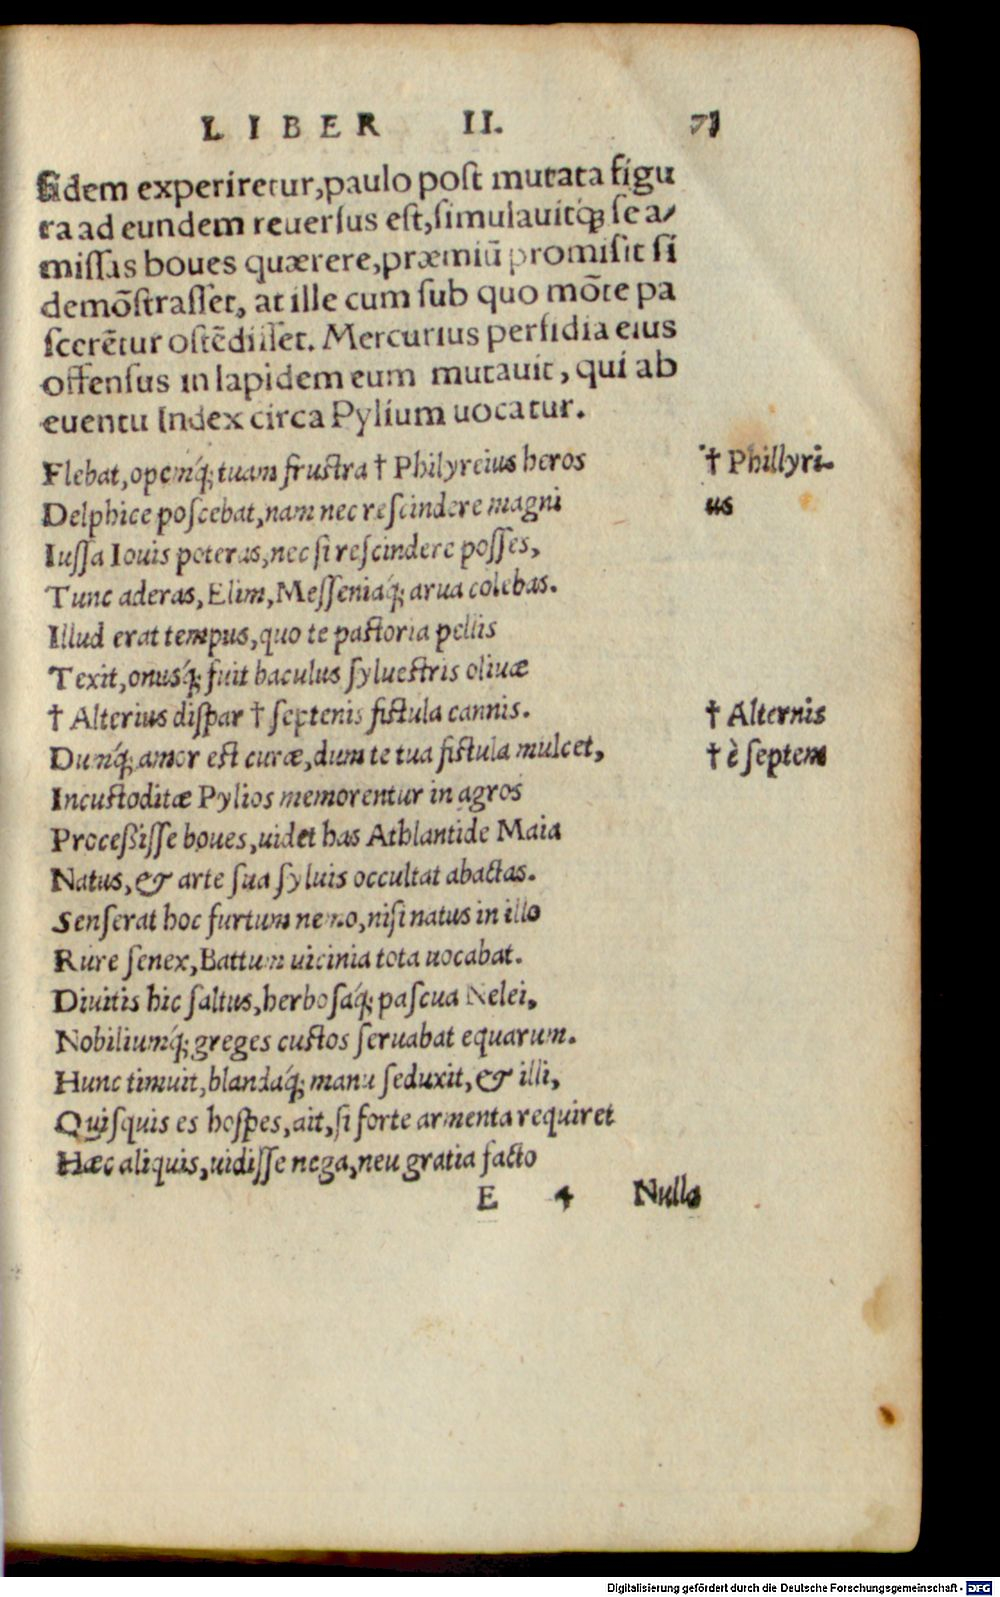 LIBER II. 71
fidem experiretur, paulo post mutata figu
ra ad eundem reuersus est, simulauitq́; se a/
missas boues quærere, præmiũ promisit si
demõstrasset, at ille cum sub quo mõte pa
scerẽtur ostẽdisset. Mercurius perfidia eius
offensus in lapidem eum mutauit, qui ab
euentu Index circa Pylium uocatur.
Flebat, opemq́; tuam frustra † Philyreius heros † Phillyri-
Delphice poscebat, nam nec rescindere magni us
Iussa Iouis poteras, nec si rescindere posses,
Tunc aderas, Elim, Messeniaq́; arua colebas.
Illud erat tempus, quo te pastoria pellis
Texit, onusq́; fuit baculus syluestris oliuæ
† Alterius dispar † septenis fistula cannis. † Alternis
Dumq́; amor est curæ, dum te tua fistula mulcet, † è septem
Incustoditæ Pylios memorentur in agros
Processisse boues, uidet has Athlantide Maia
Natus, & arte sua syluis occultat abactas.
Senserat hoc furtum nemo, nisi natus in illo
Rure senex, Battum uicinia tota uocabat.
Diuitis hic saltus, herbosaq́; pascua Nelei,
Nobiliumq́; greges custos seruabat equarum.
Hunc timuit, blandaq́; manu seduxit, & illi,
Quisquis es hospes, ait, si forte armenta requiret
Hæc aliquis, uidisse nega, neu gratia facto
E 4 Nulla
Digitalisierung gefördert durch die Deutsche Forschungsgemeinschaft - DFG